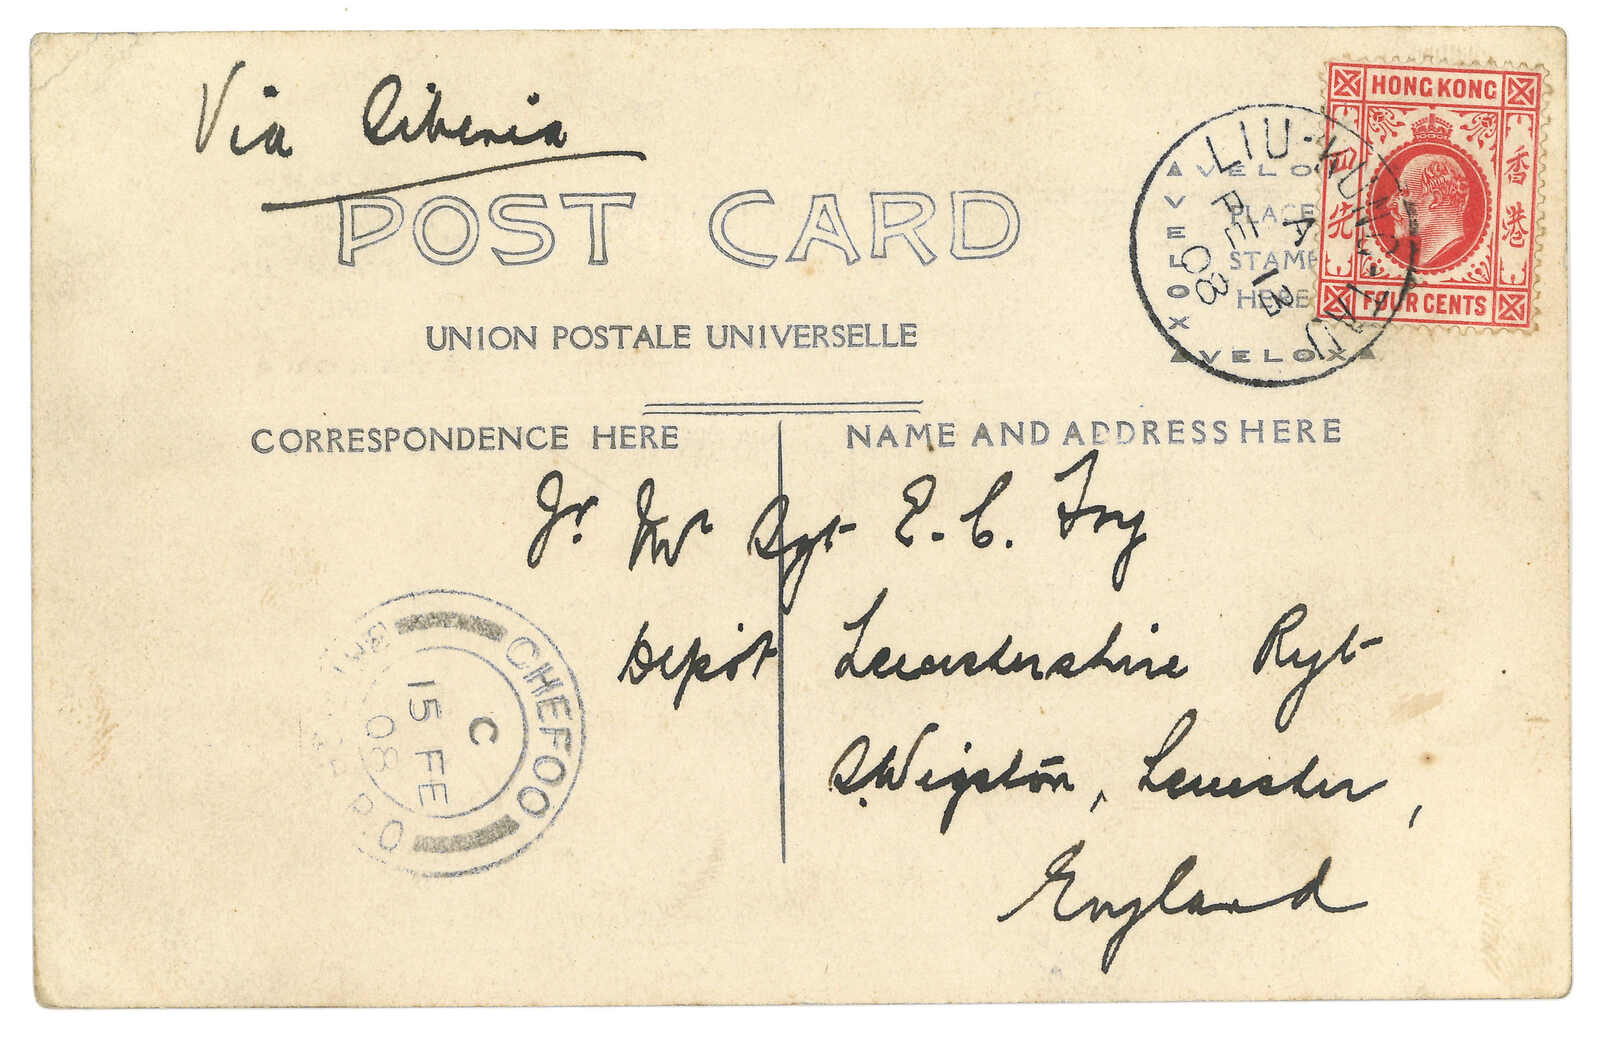 Via Siberia
HONG KONG
香港
四先
FOUR CENTS
LIU·KUNG·TAU
A
FE 13
08
VELOX
VELOX
VELOX
PLACE
STAMP
HERE
POST CARD
UNION POSTALE UNIVERSELLE
CORRESPONDENCE HERE
NAME AND ADDRESS HERE
Sgt E. C. Fry
Depôt Leicestershire Rgt
S. Wigston, Leicester,
England
CHEFOO
C
15 FE
08
BR. P.O.